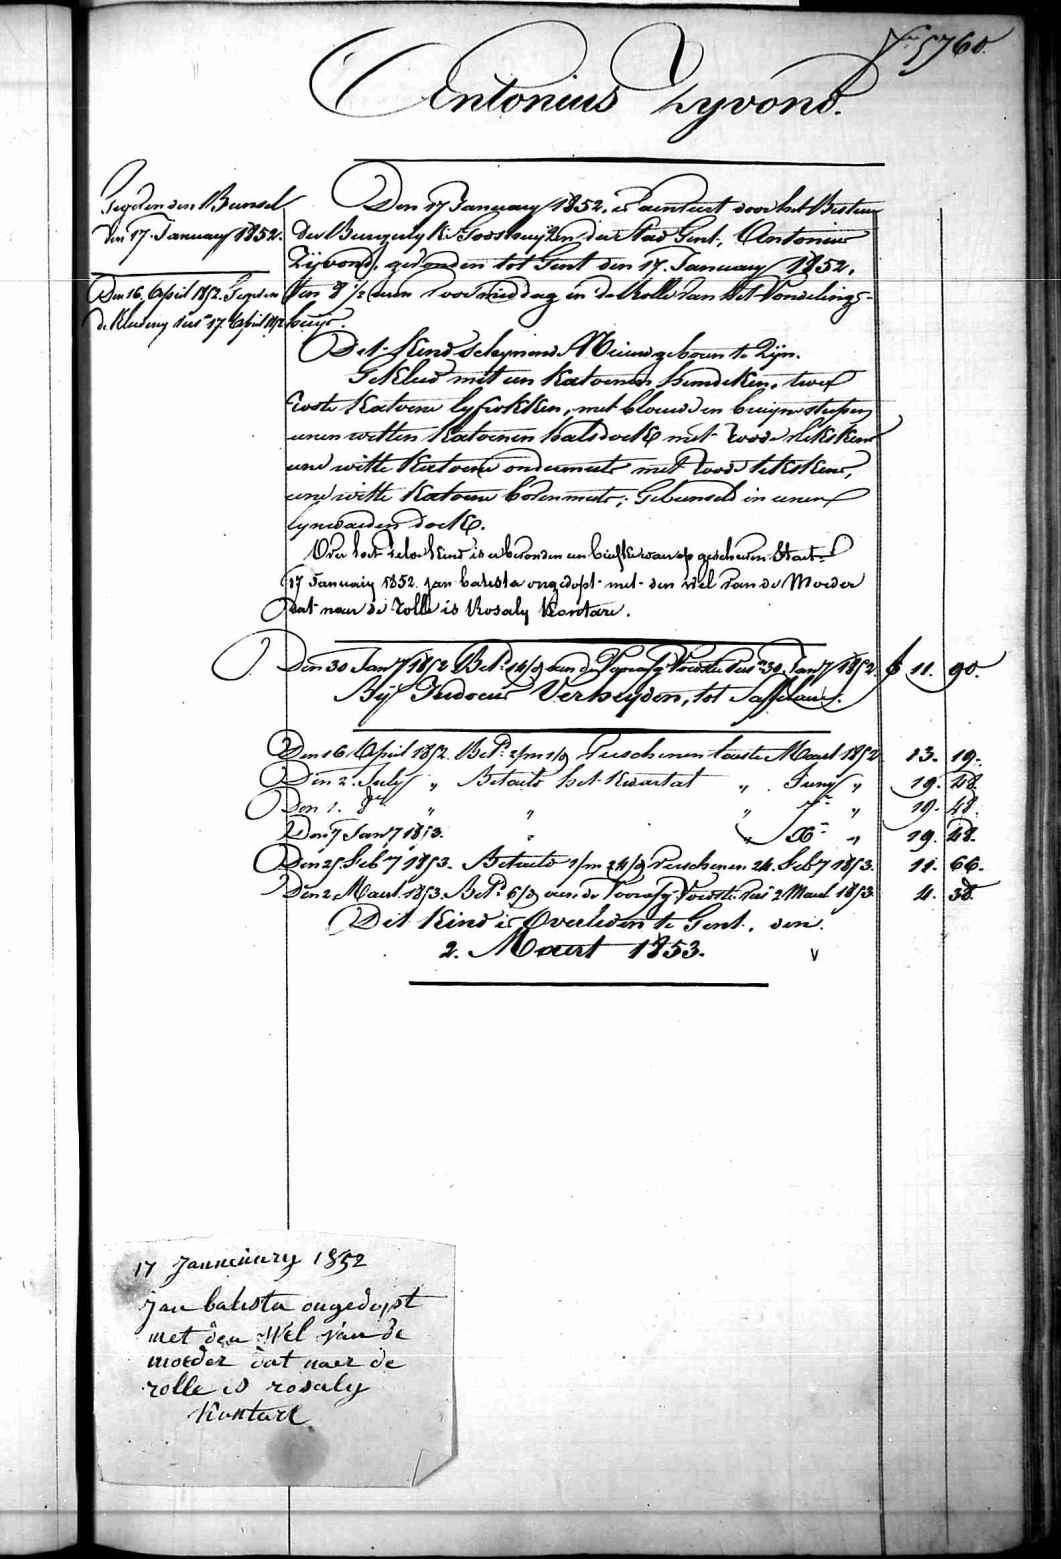 N° 5760.
Antonius Zyvond.
Gegeven den Bunsel
den 17. January 1852.
Den 16. April 1852. Gegeven
de Kleeding 17. April 1852
Den 17 January 1852. is aenveert door het Bestuur
der Burgerlyke Godshuyzen der Stad Gent, Antonius
Zyvond, gevonden tot Gent den 17. January 1852,
ten 8 1/2 uren voormiddag in de Rolle van het Vondelings-
huys.
Det Kind schynende Nieuwgeboren te Zyn.
Gekleed met een Katoenen hemdeken, twee
roste Katoene lyfrokken, met blauwe en bruyne strepen
eenen witten Katoenen halsdoek met roode plekskens
eene witte Katoene ondermuts met roode plekskens,
eene witte Katoene bovenmuts; Gebunseld in eenen
lynwaeden doek.
Over het zelve Kind is er bevonden een briefke waer op geschreven Staet
17 January 1852. jan batista ongedopt met den Wel van de Moeder
dat naer de rolle is Rosaly Kontare.
Den 30 Jany 1852 Betd 14/d aen de 30. Jany 1852. 11. 90.
Bij Judocus Verheyden, tot Saffelaere.
Den 16 April 1852. Betd 2/m 1/d Verschenen laeste Maert 1852 13. 19.
Den 2. July " Betaeld het Kwartael " Juny " 19. 48.
Den 1. 8bre " " " 7bre " 19. 48.
Den 7 Jany 1853. " " Xbre " 19. 48.
Den 25. Feby 1853. Betaeld 1/m 24/d Verschenen 24. Feby 1853. 11. 66.
Den 2. Maert 1853. Betd 6/d aen de 2 Maert 1853 4. 38.
Dit Kind is Overleden te Gent, den
2. Maert 1853.
17 Janneuary 1852
Jan batista ongedopt
met den Wel van de
moeder dat naer de
rolle is rosaly
Kontare